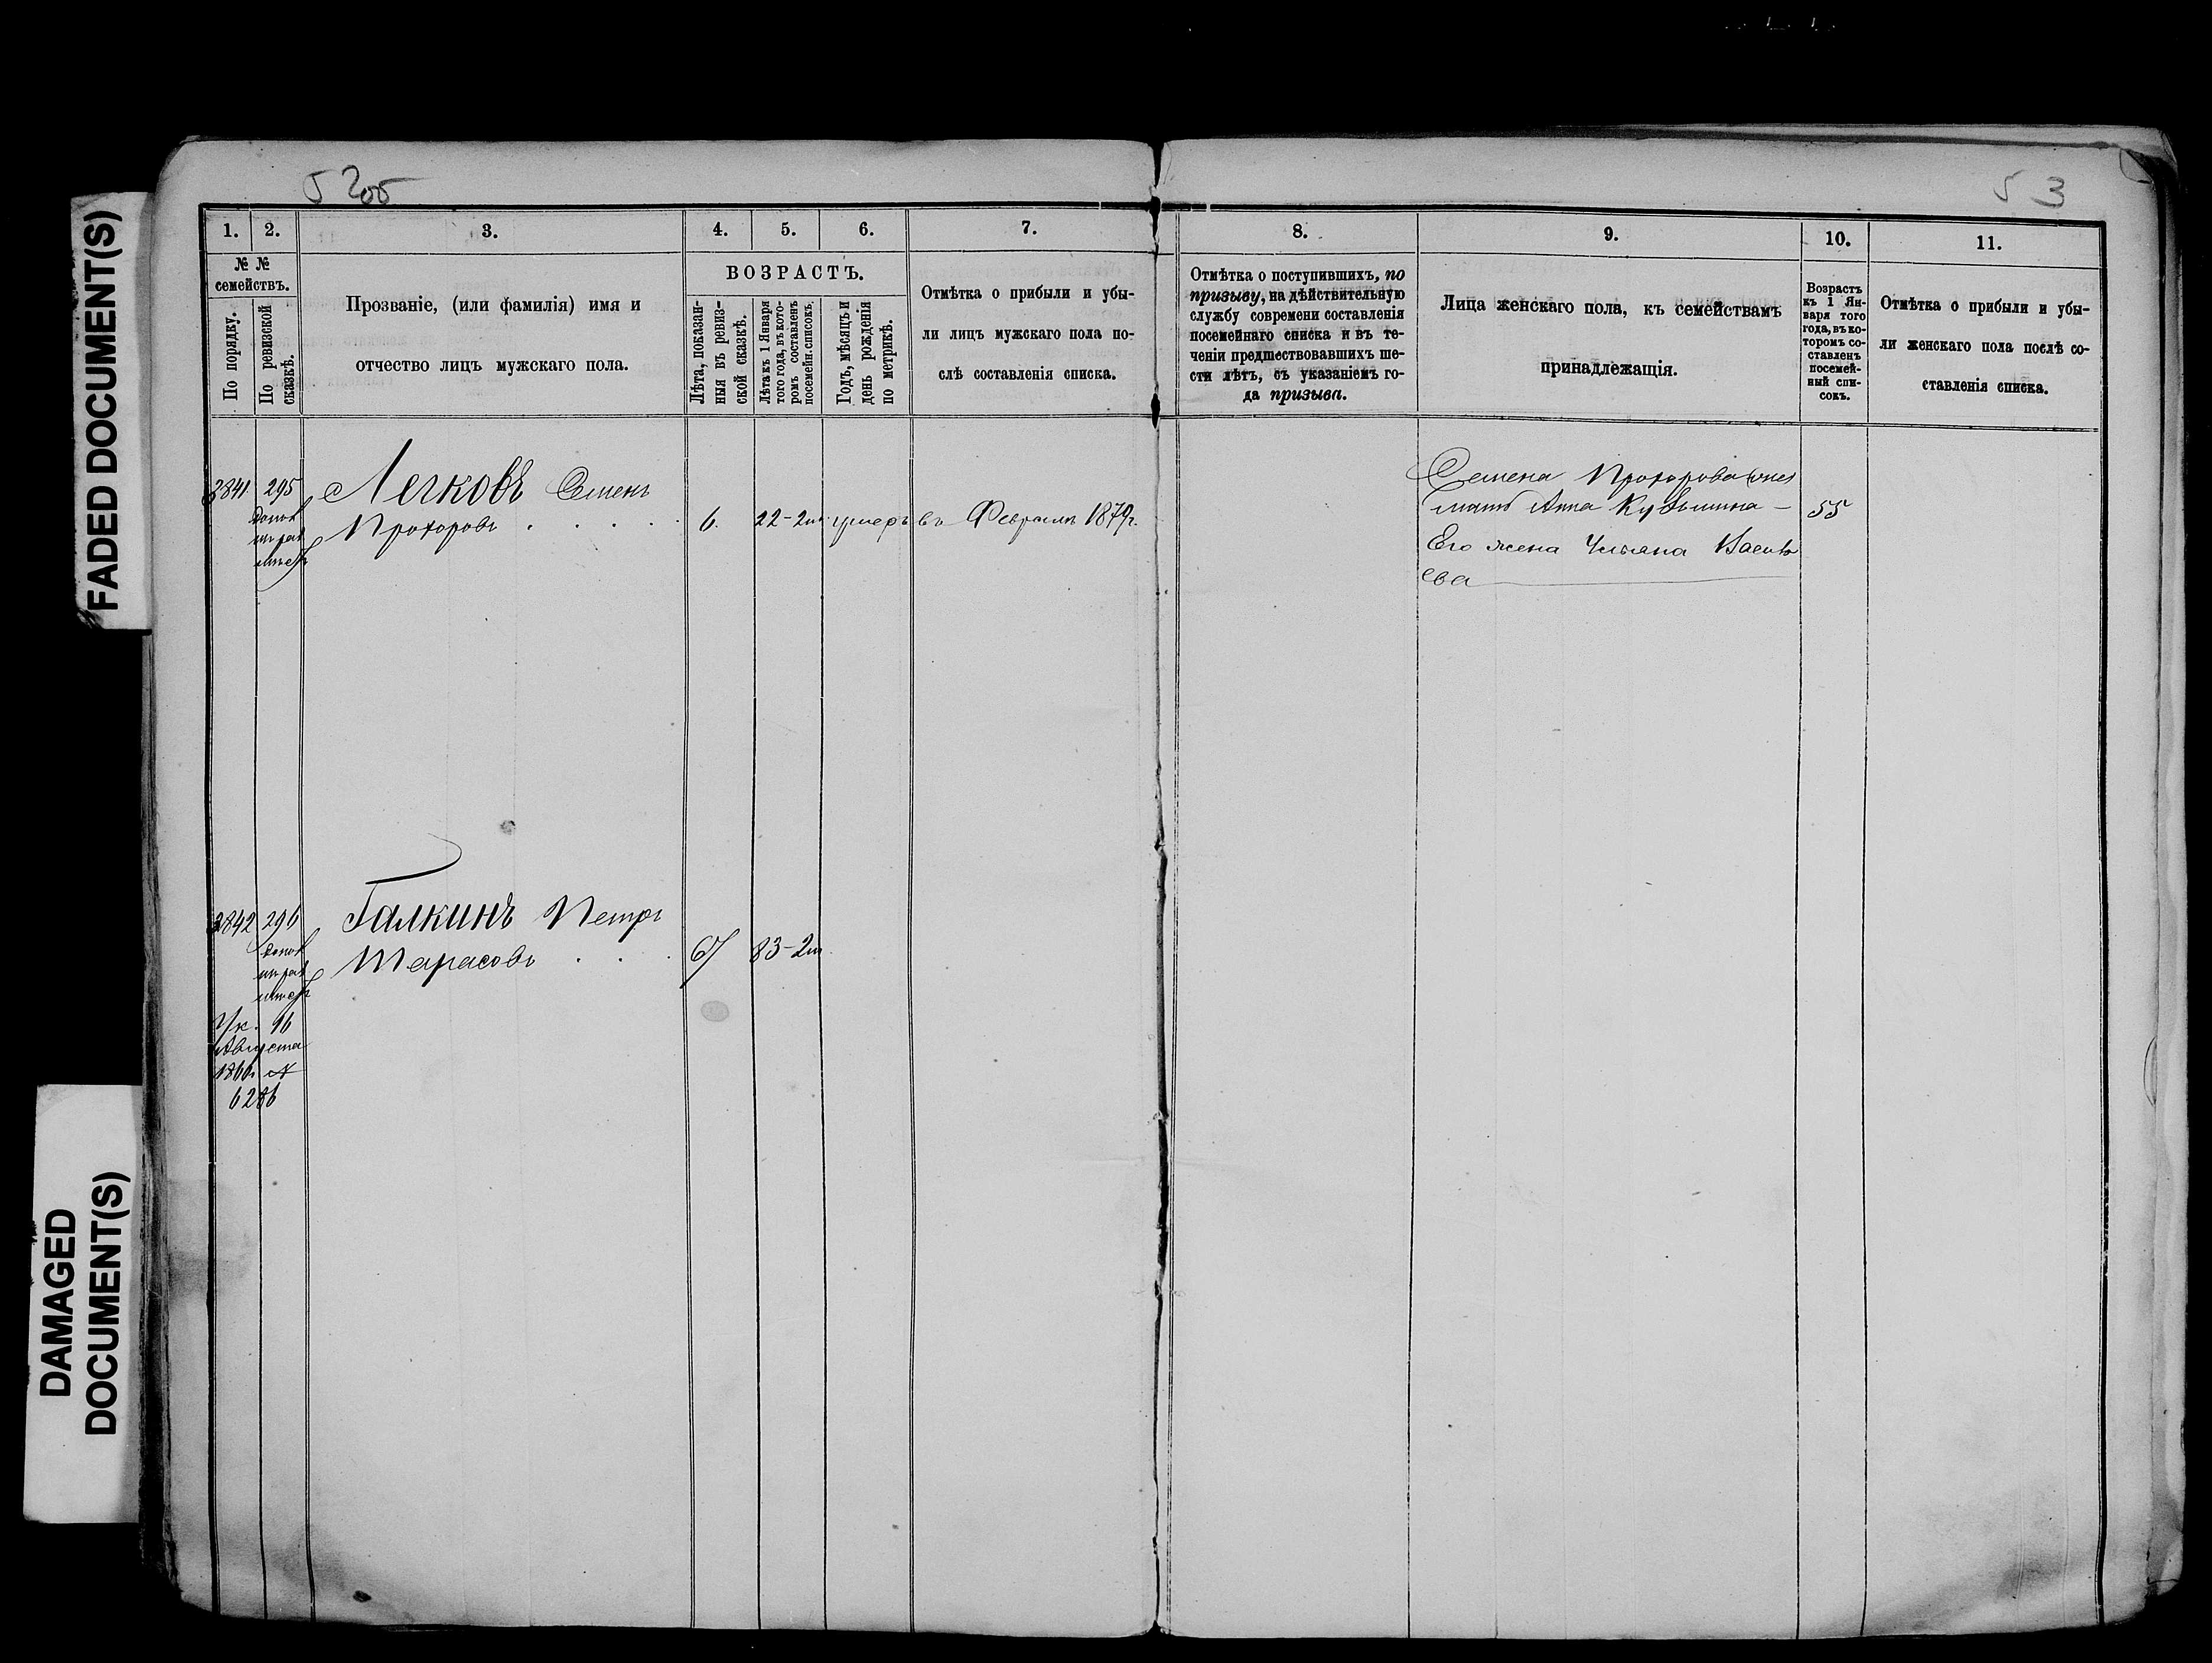 FADED DOCUMENT(S)
DAMAGED
DOCUMENT(S)
53
1.
2.
3.
4.
5.
6.
7.
8.
9.
10.
11.
№ №
семействъ.
По порядку.
По ревизской
сказкѣ.
Прозваніе, (или фамилія) имя и
отчество лицъ мужскаго пола.
ВОЗРАСТЪ.
Лѣта, показан-
ныя въ ревиз-
ской сказкѣ.
Лѣта къ 1 Января
того года, въ кото-
ромъ составленъ
посемейн. списокъ.
Годъ, мѣсяцъ и
день рожденія
по метрикѣ.
Отмѣтка о прибыли и убы-
ли лицъ мужскаго пола по-
слѣ составленія списка.
Отмѣтка о поступившихъ, по
призыву, на дѣйствительную
службу современи составленія
посемейнаго списка и въ те-
ченіи предшествовавшихъ ше-
сти лѣтъ, съ указаніемъ го-
да призыва.
Лица женскаго пола, къ семействамъ
принадлежащія.
Возрастъ
къ 1 Ян-
варя того
года, въ ко-
торомъ со-
ставленъ
посемей-
ный спи-
сокъ.
Отмѣтка о прибыли и убы-
ли женскаго пола послѣ со-
ставленія списка.
2841 295 Легковъ Семенъ
Прохоровъ . . . . 6. 22- умеръ въ Февралѣ 1879г.
Семена Прохорова
мать Анна Кузьмина - 55
Его жена Ульяна
ева
2842 296 Галкинъ Петръ
Тарасовъ . . . 67 83-
Ук. 16
Августа
1866г №
6286